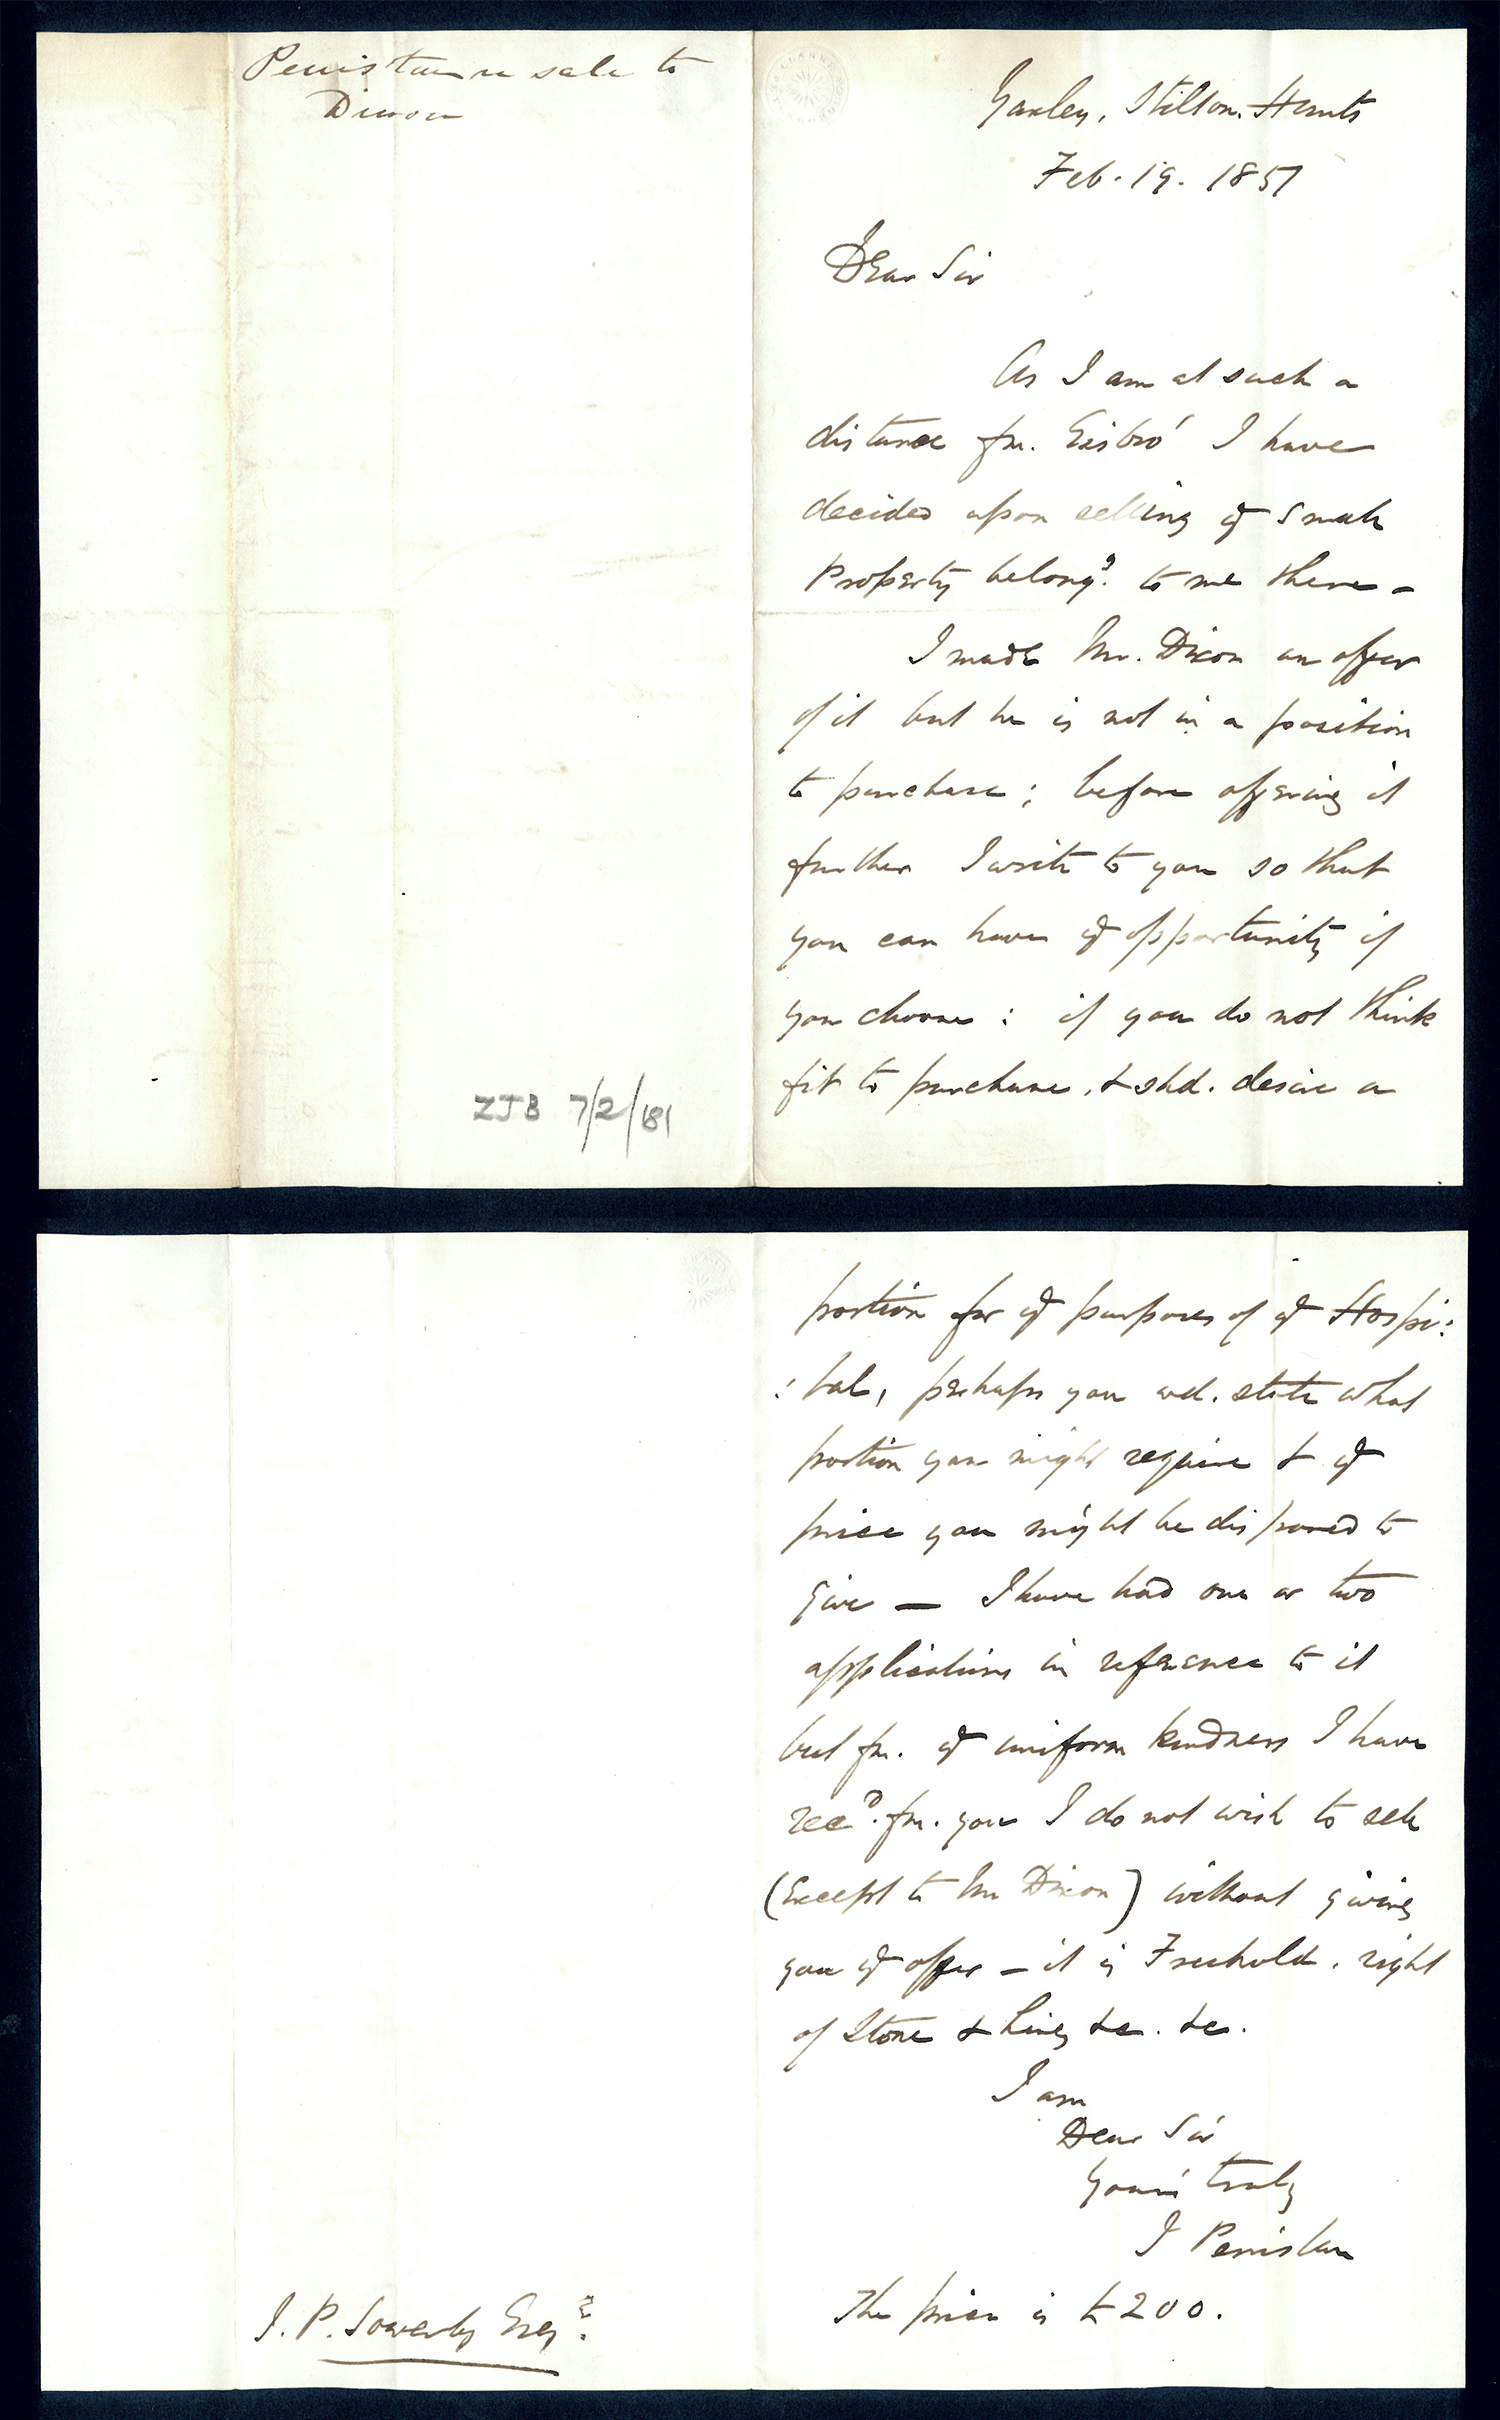 Penistan re sale to
Dixon
ZJB 7/2/181
Yaxley, Stilton. Hunts
Feb. 19. 1857
Dear Sir
As I am at such a
distance fm. Gisbro' I have
decided upon selling ye small
Property belongg. to me there -
I made Mr. Dixon an offer
of it but he is not in a position
to purchase; before offering it
further I write to you so that
you can have ye opportunity if
you choose: if you do not think
fit to purchase, & shd. desire a
portion for ye purposes of ye Hospi:
:tal, perhaps you wd. state what
portion you might require & ye
price you might be disposed to
give — I have had one or two
applications in reference to it
but fm. ye uniform kindness I have
recd. fm. you I do not wish to sell
(Except to Mr Dixon) without giving
you ye offer — it is Freehold. right
of Stone & &c. &c.
I am
Dear Sir
Yours truly
J Penistan
The price is £200.
J. P. Sowerby Esqre.